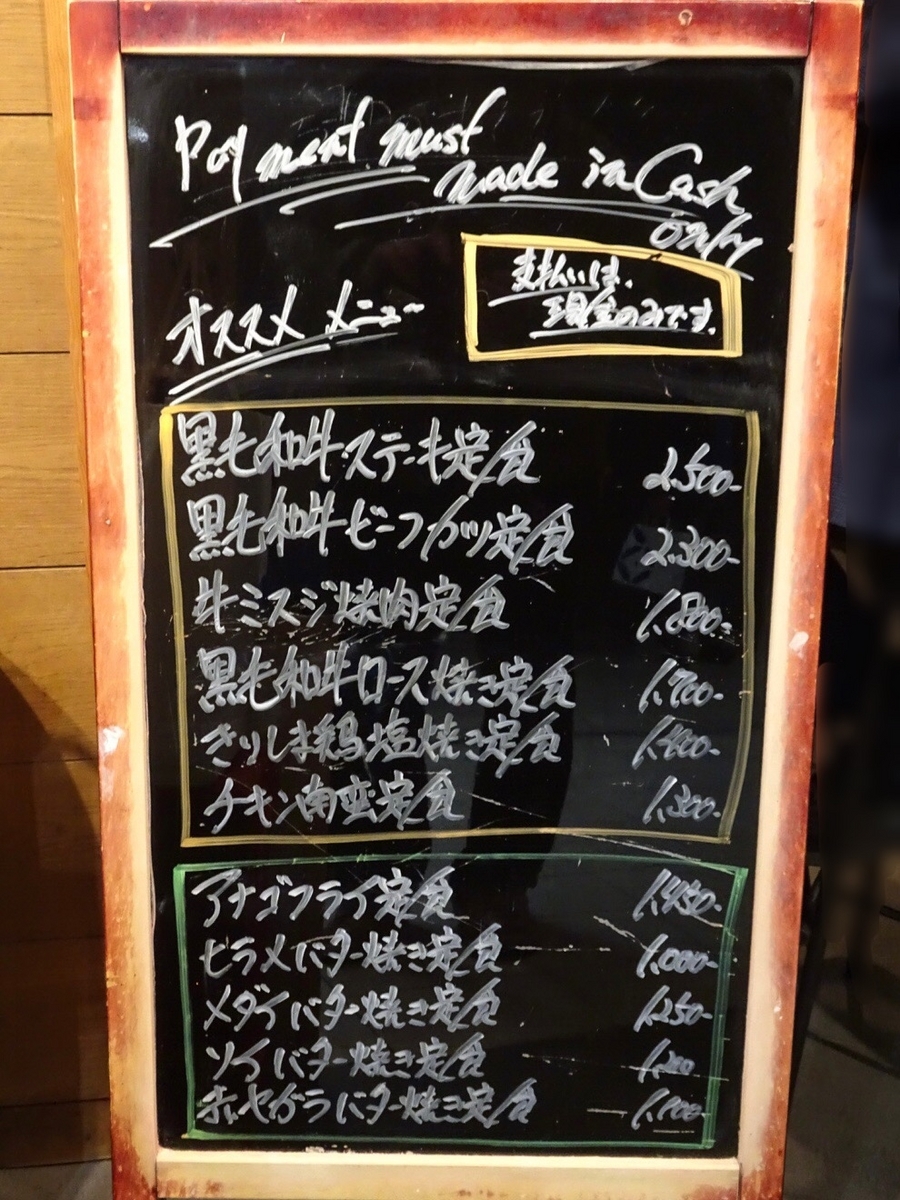 Payment must
made in Cash
only
支払いは、
現金のみです.
オススメ メニュー
黒毛和牛ステーキ定食 2.500-
黒毛和牛ビーフカツ定食 2.300-
牛ミスジ焼肉定食 1.800-
黒毛和牛ロース焼き定食 1.700-
きりしま鶏塩焼き定食
チキン南蛮定食 1.300-
アナゴフライ定食 1.450-
ヒラメバター焼き定食 1.000-
メダイバター焼き定食 1.250-
ソイバター焼き定食 1.200
赤ヤガラバター焼き定食